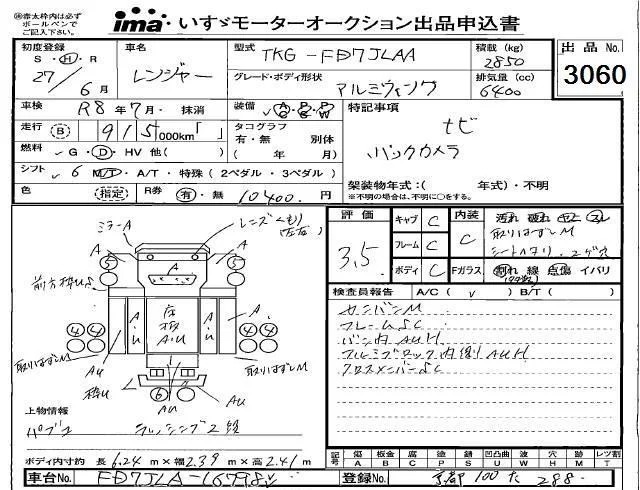 ㊟赤太枠内は必ず
ボールペンで
ご記入下さい。
ima いすゞモーターオークション出品申込書
初度登録
S・H・R
27/6月
車名
レンジャー
型式 TKG-FD7JLAA
グレード・ボディ形状
アルミウィング
積載(kg)
2850
排気量(cc)
6400
出品 No.
3060
車検 R8年7月・抹消
装備 A/C・P/S・P/W
特記事項
ナビ
バックカメラ
走行 B 915,000km「 」
タコグラフ
有・無 別体
( 年 月)
燃料 G・D・HV 他( )
シフト 6 M/T・A/T・特殊(2ペダル・3ペダル)
架装物年式:( 年式)・不明
※不明の場合は、不明に○をする。
色 (指定) R券 有・無 10400.円
ミラーA
レンズくもり
(左右)
A
A
A
5
5
前方枠US
A・U
床板
A・U
A・U
4 4
4 4
取りはずしM
AU
AU
取りはずしM
枠US
L
6
AU
AU
上物情報
パブコ ラッシング2段
ボディ内寸約 長6.24m×幅2.39m×高2.41m
評価
3.5
キャブ C
フレーム C
ボディ C
内装
C
汚れ 破れ コゲ スレ
取りはずしM
シートヘタリ・コゲ穴
Fガラス 割れ 線 点傷 イバリ
検査員報告 A/C( ✓ ) B/T( )
サンバンM
フレームSC
バン内AUH
アルミブロック内側AUH
クロスメンバーSC
記号 傷 A 板金 B 腐 C 塗 P 錆 S 凹凸曲 U 波 W 穴 H 無 M レツ割 T
車台No. FD7JLA-16798
登録No. 京都 100 た 288